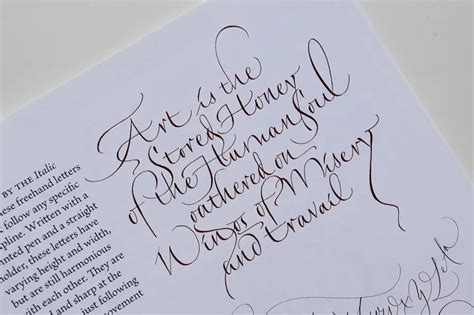 Art is the
Stored Honey
of the Human Soul
gathered on
Wings of Misery
and travail
BY THE Italic
these freehand letters
follow any specific
Written with a
pointed pen and a straight
holder, these letters have
varying height and width,
but are still harmonious
with each other. They are
and sharp at the
just following
movement